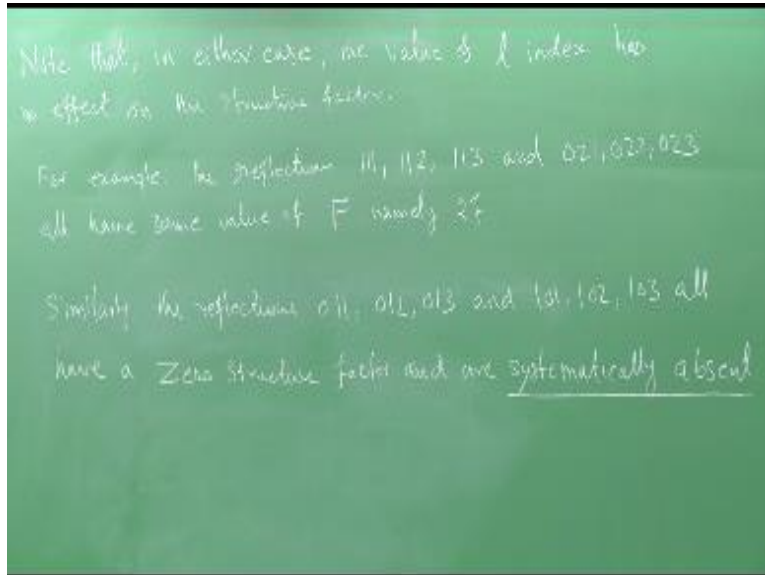 Note that, in either case, the value of l index has
no effect on the structure factor.
For example the reflections 111, 112, 113 and 021, 022, 023
all have same value of F namely 2f
Similarly the reflections 011, 012, 013 and 101, 102, 103 all
have a Zero Structure factor and are systematically absent